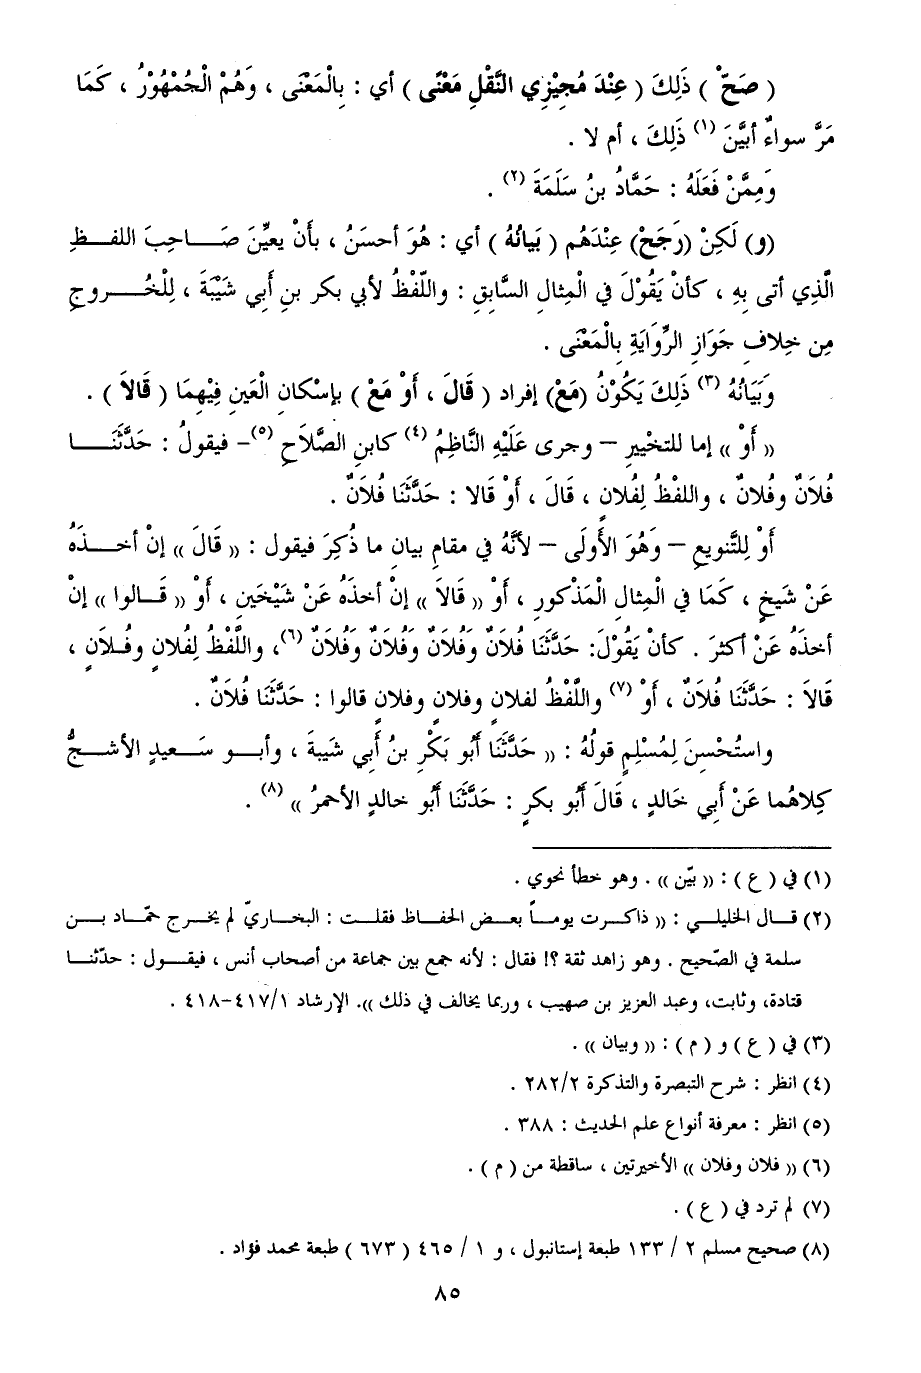 ( صَحّْ ) ذَلِكَ ( عِنْدَ مُجِيْزِي النَّقْلِ مَعْنًى ) أي : بِالْمَعْنَى ، وَهُمْ الْجُمْهُوْرُ ، كَمَا
مَرَّ سواءٌ أبَيَّنَ (١) ذَلِكَ ، أم لا .
وَمِمَّنْ فَعَلَهُ : حَمَّادُ بنُ سَلَمَةَ (٢) .
(و) لَكِنْ (رَجَحْ) عِنْدَهُم ( بَيَانُهُ ) أي : هُوَ أحسَنُ ، بأن يعيِّنَ صَاحِبَ اللفظِ
الَّذِي أتى بِهِ ، كأنْ يَقُوْلَ فِي الْمِثالِ السَّابقِ : واللَّفْظُ لأبي بكر بنِ أَبِي شَيْبَةَ ، لِلْخُروجِ
مِن خِلافِ جَوَازِ الرِّوَايَةِ بِالْمَعْنَى .
وَبَيَانُهُ (٣) ذَلِكَ يَكُوْنُ (مَعْ) إفراد ( قَالَ ، أَوْ مَعْ ) بإسْكانِ الْعَينِ فِيْهِمَا ( قَالاَ ) .
« أَوْ » إما للتخْييرِ – وجرى عَلَيْهِ النَّاظِمُ (٤) كابنِ الصَّلاَحِ (٥)– فيقولُ : حَدَّثَنَا
فُلاَنٌ وفُلانٌ ، واللفْظُ لِفُلانٍ ، قَالَ ، أَوْ قَالا : حَدَّثَنَا فُلاَنٌ .
أَوْ لِلتَّنويعِ – وَهُوَ الأَولَى – لأنَّهُ فِي مقامِ بيانِ ما ذُكِرَ فيقول : « قَالَ » إنْ أخذَهُ
عَنْ شَيخٍ ، كَمَا فِي الْمِثالِ الْمَذْكورِ ، أَوْ « قَالاَ » إنْ أخذَهُ عَنْ شَيْخَينِ ، أَوْ « قَالوا » إنْ
أخذَهُ عَنْ أكثرَ . كأنْ يَقُوْلَ: حَدَّثَنَا فُلاَنٌ وَفُلاَنٌ وَفُلاَنٌ وَفُلاَنٌ (٦)، واللَّفْظُ لِفُلانٍ وفُلاَنٍ ،
قَالاَ : حَدَّثَنَا فُلاَنٌ ، أَوْ (٧) واللَّفْظُ لفلانٍ وفلانٍ وفلانٍ قالوا : حَدَّثَنَا فُلاَنٌ .
واستُحْسِنَ لِمُسْلِمٍ قولُهُ : « حَدَّثَنَا أَبُو بَكْرِ بنُ أَبِي شيبةَ ، وأبو سَعيدٍ الأشجُّ
كِلاهُما عَنْ أَبِي خَالدٍ ، قَالَ أَبُو بكرٍ : حَدَّثَنَا أَبُو خالدٍ الأحمرُ » (٨) .
(١) في ( ع ) : « بيّن » . وهو خطأ نحوي .
(٢) قال الخليلي : « ذاكرت يوماً بعض الحفاظ فقلت : البخاريّ لم يخرج حمّاد بن
سلمة في الصّحيح . وهو زاهد ثقة ؟! فقال : لأنه جمع بين جماعة من أصحاب أنس ، فيقول : حدّثنا
قتادة، وثابت، وعبد العزيز بن صهيب ، وربما يخالف في ذلك ». الإرشاد ٤١٧/١–٤١٨ .
(٣) في ( ع ) و ( م ) : « وبيان » .
(٤) انظر : شرح التبصرة والتذكرة ٢٨٢/٢ .
(٥) انظر : معرفة أنواع علم الحديث : ٣٨٨ .
(٦) « فلان وفلان » الأخيرتين ، ساقطة من ( م ) .
(٧) لم ترد في ( ع ) .
(٨) صحيح مسلم ٢ / ١٣٣ طبعة إستانبول ، و ١ / ٤٦٥ ( ٦٧٣ ) طبعة محمد فؤاد .
٨٥